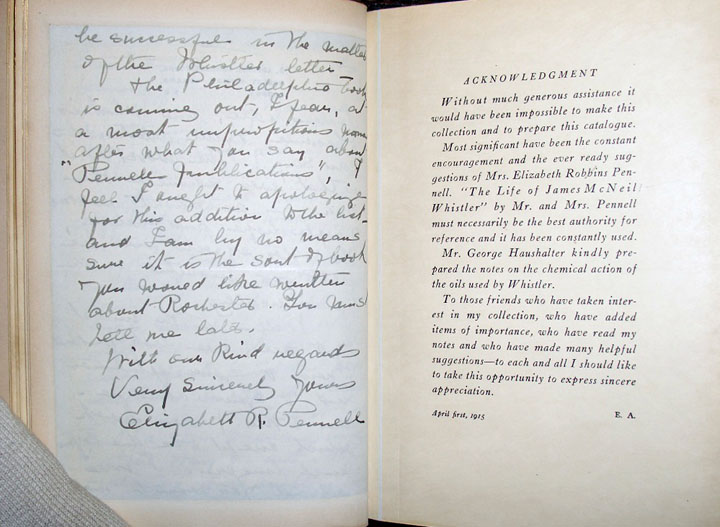 be successful in the matter
of the Whistler letter
the Philadelphia book
is coming out, I fear, at
a most unpropitious moment
after what you say about
"Pennell Publications", I
feel I ought to apologize
for this addition to the list
and I am by no means
sure it is the sort of book
you would like written
about Rochester. You must
tell me later.
With our kind regards
Very Sincerely Yours
Elizabeth R. Pennell
ACKNOWLEDGMENT
Without much generous assistance it
would have been impossible to make this
collection and to prepare this catalogue.
Most significant have been the constant
encouragement and the ever ready sug-
gestions of Mrs. Elizabeth Robbins Pen-
nell. "The Life of James McNeil
Whistler" by Mr. and Mrs. Pennell
must necessarily be the best authority for
reference and it has been constantly used.
Mr. George Haushalter kindly pre-
pared the notes on the chemical action of
the oils used by Whistler.
To those friends who have taken inter-
est in my collection, who have added
items of importance, who have read my
notes and who have made many helpful
suggestions—to each and all I should like
to take this opportunity to express sincere
appreciation.
April first, 1915 E. A.